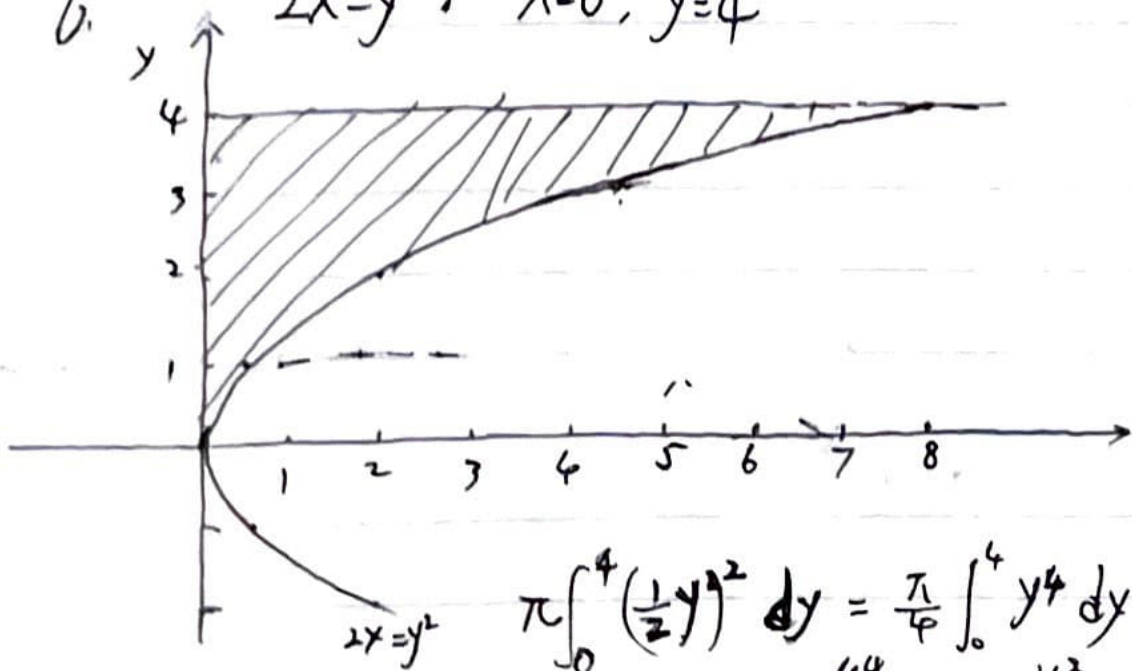 2x=y² x=0, y=4
y
4
3
2
1
1 2 3 4 5 6 7 8
2x=y²
π∫₀⁴(½y²)² dy = π/4 ∫₀⁴ y⁴ dy